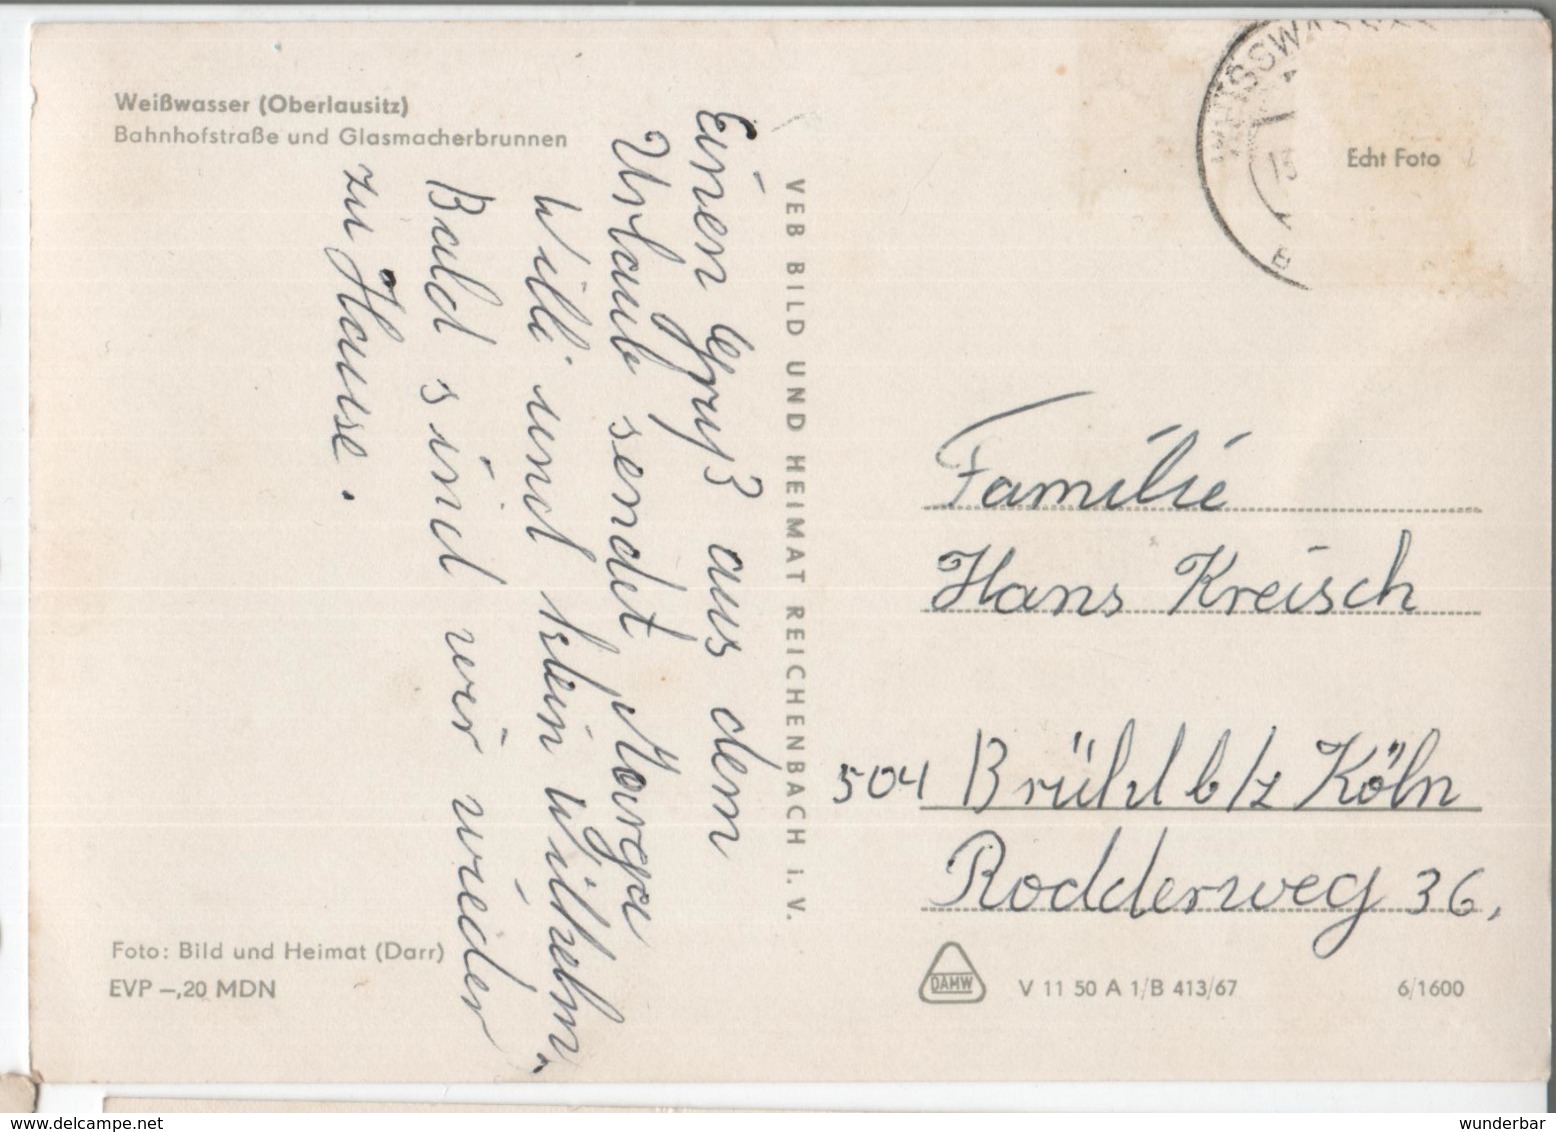 Weißwasser (Oberlausitz)
Bahnhofstraße und Glasmacherbrunnen
Einen Gruß aus dem
Urlaub sendet Marga
Willi und klein Wilhelm.
Bald sind wir wieder
zu Hause.
Foto: Bild und Heimat (Darr)
EVP –,20 MDN
VEB BILD UND HEIMAT REICHENBACH i. V.
Echt Foto
Familie
Hans Kreisch
504 Brühl b/z Köln
Rodderweg 36,
DAMW
V 11 50 A 1/B 413/67
6/1600
www.delcampe.net
wunderbar